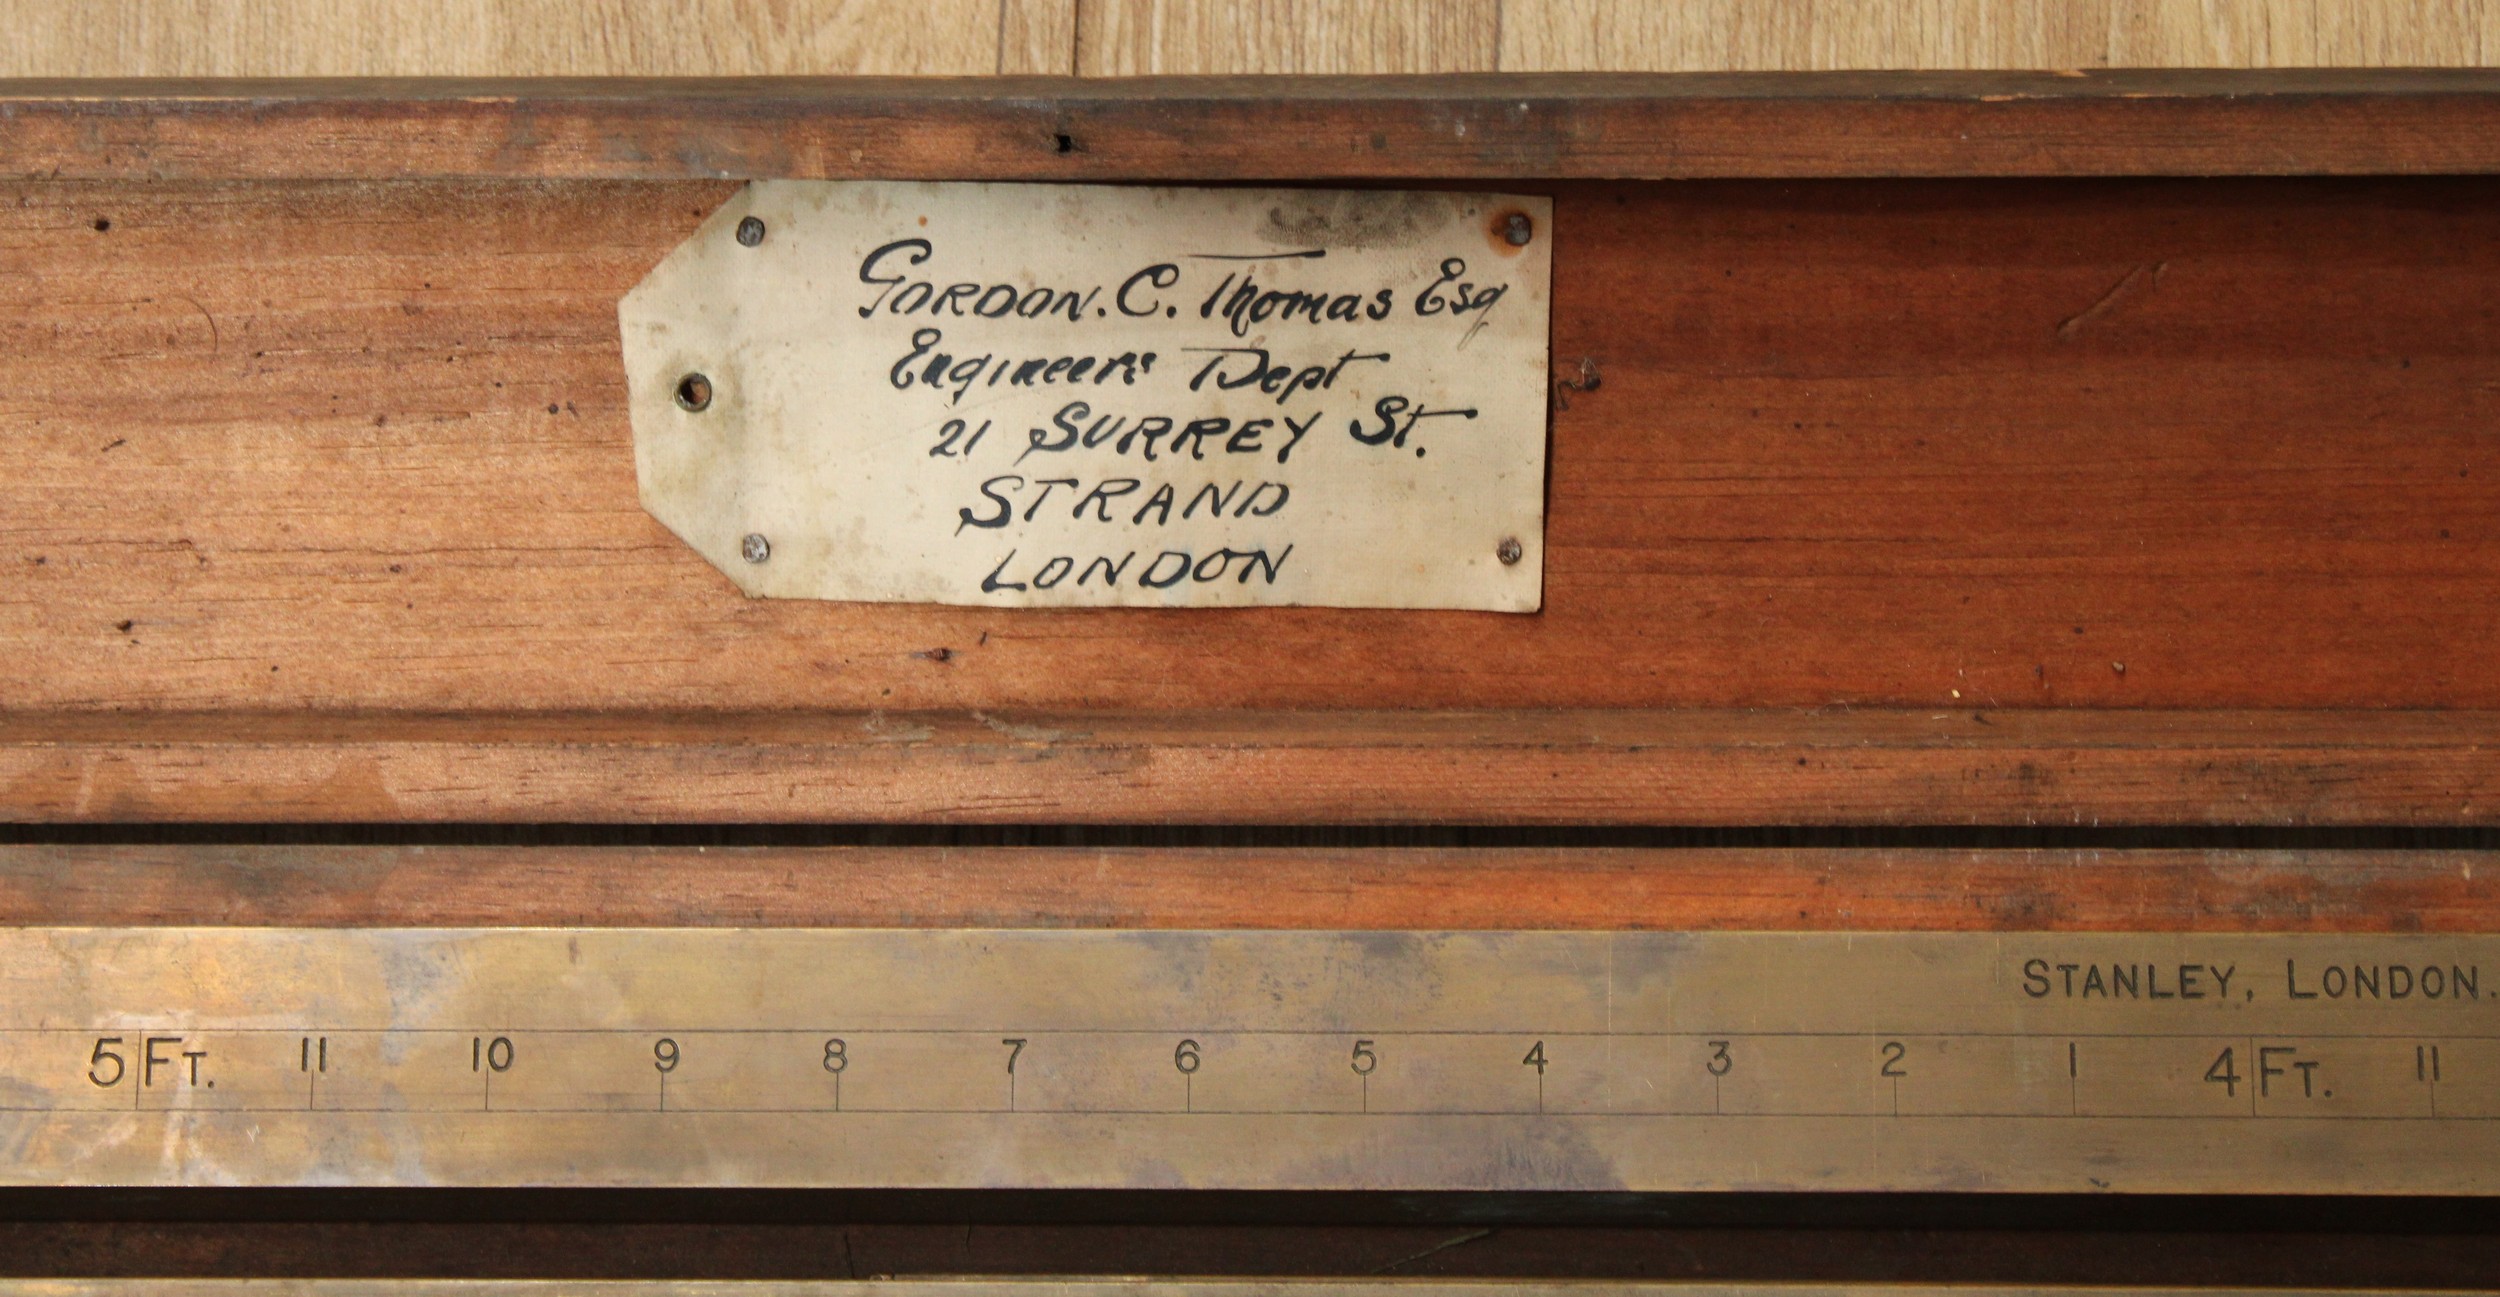 GORDON. C. Thomas Esq
Engineers Dept
21 SURREY St.
STRAND
LONDON
STANLEY, LONDON.
5 FT. 11 10 9 8 7 6 5 4 3 2 1 4 FT. 11